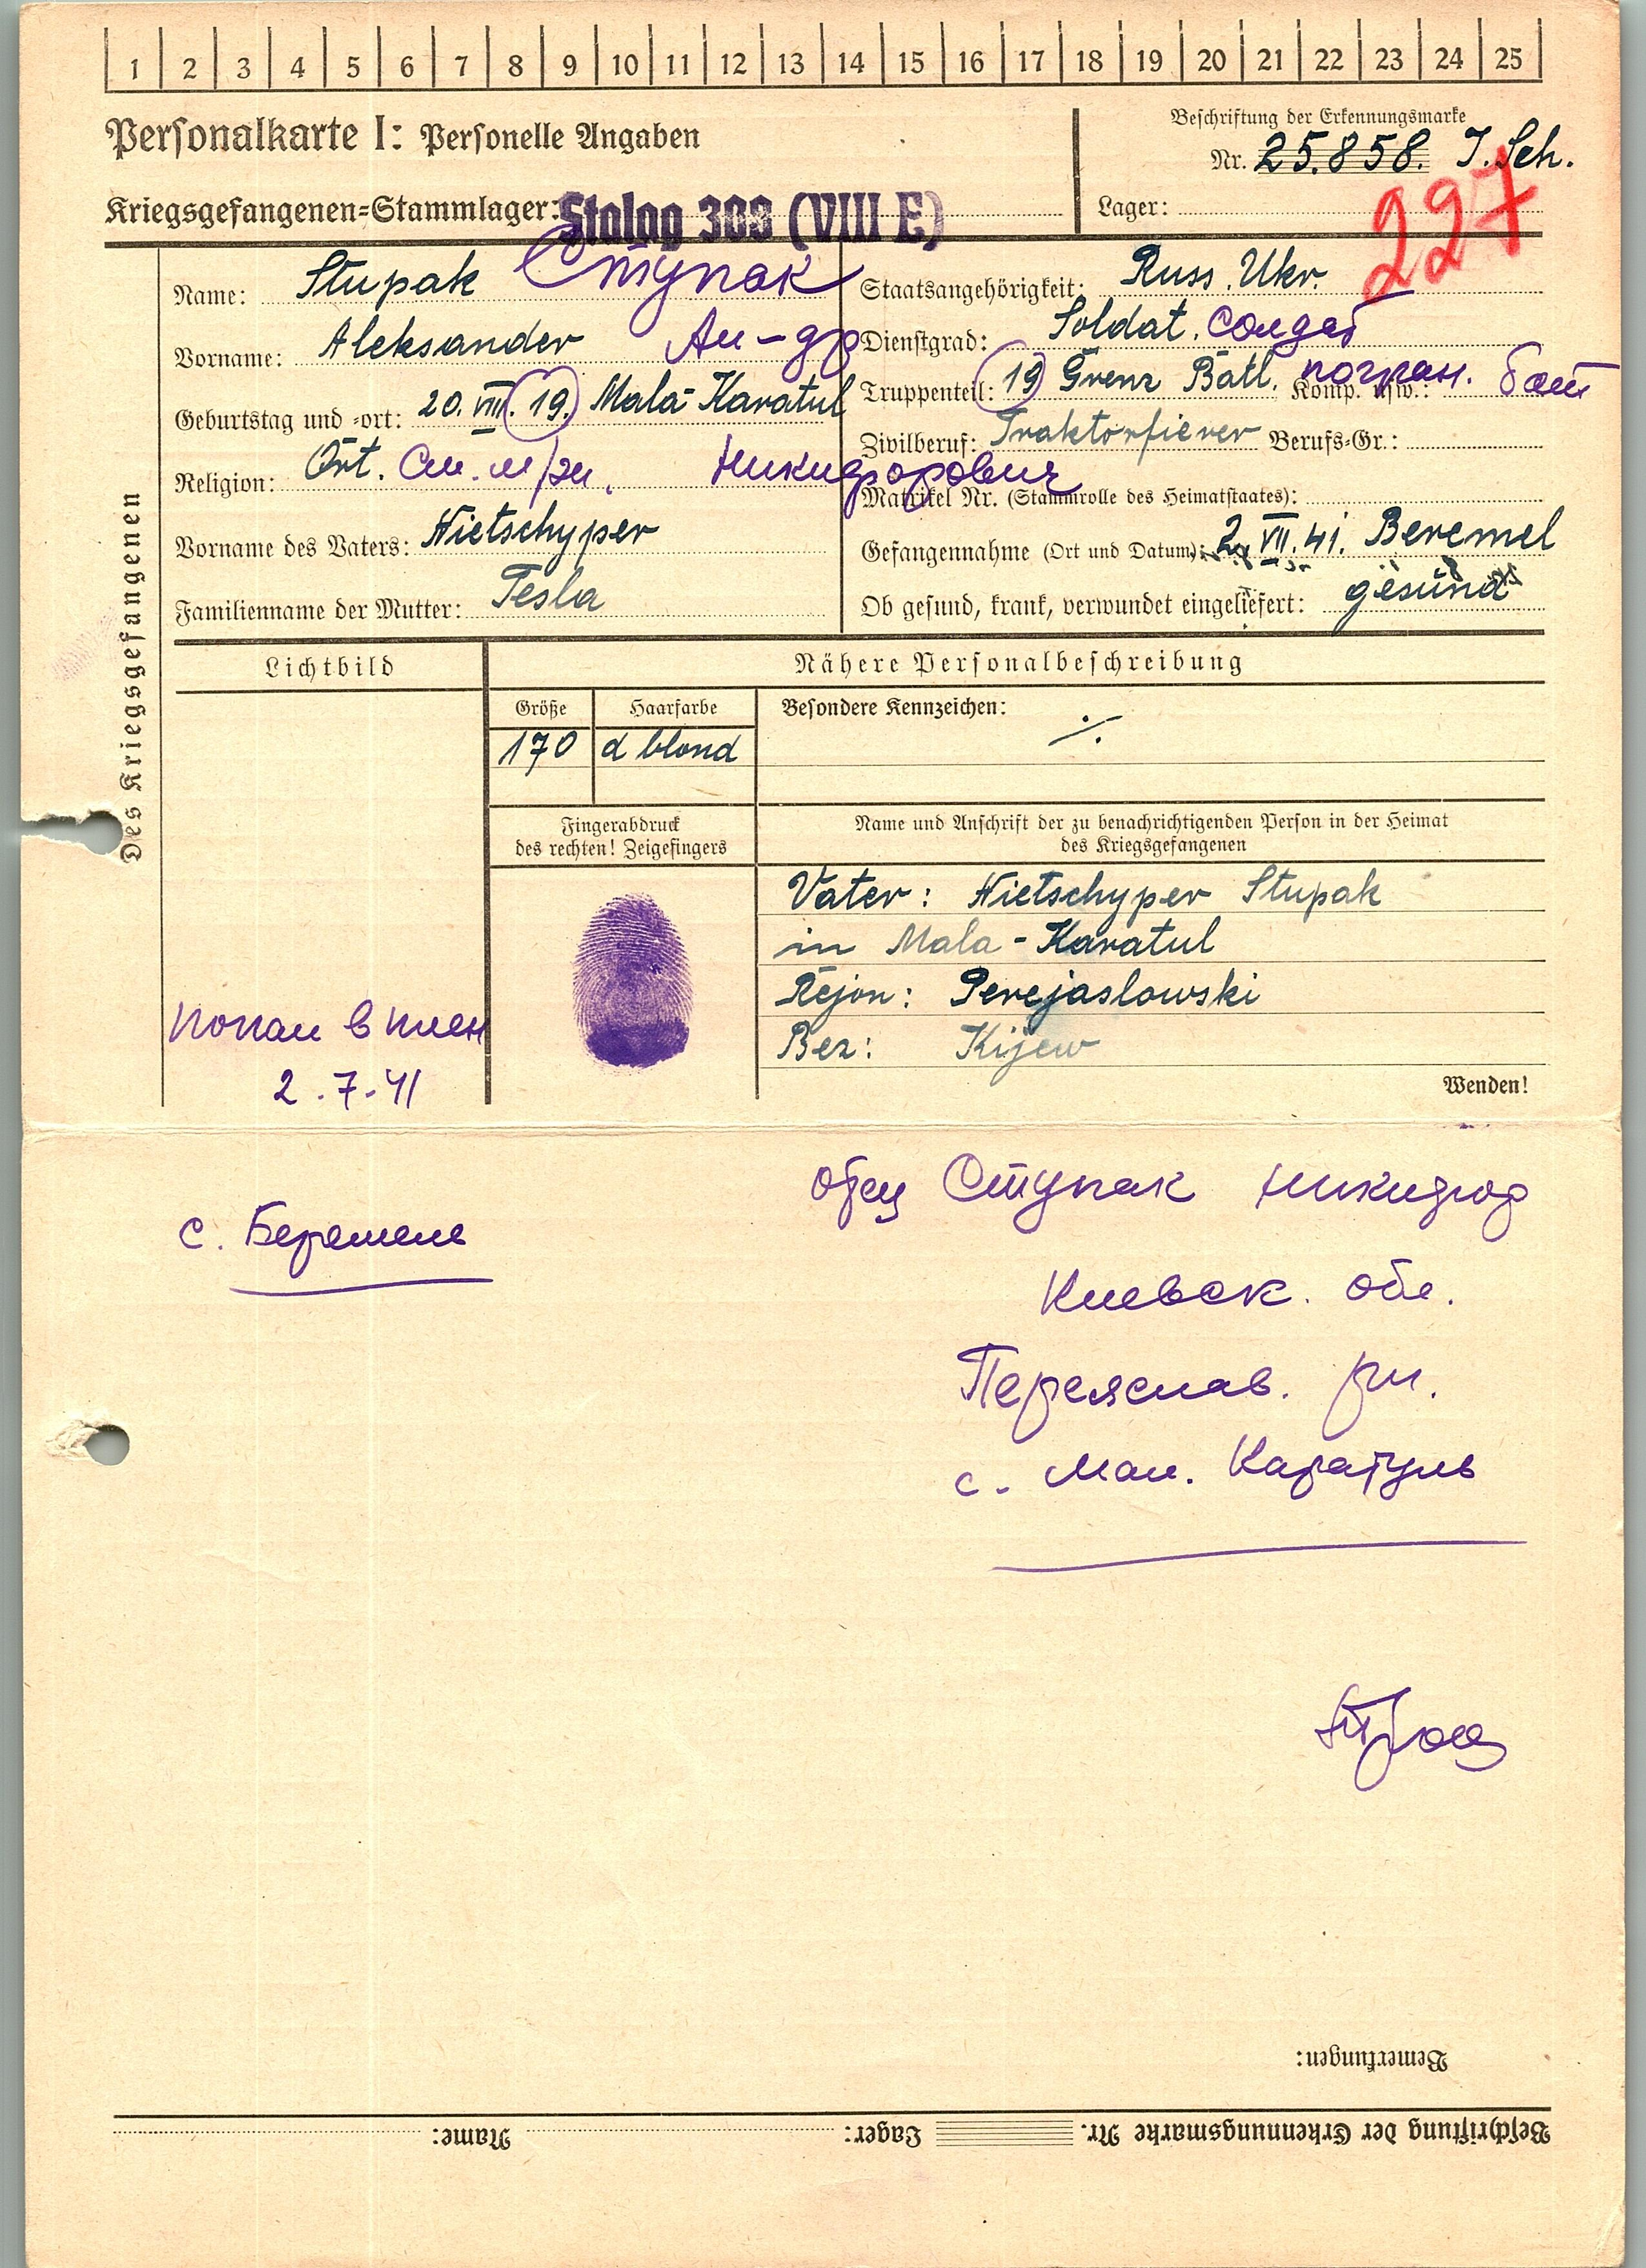 1 2 3 4 5 6 7 8 9 10 11 12 13 14 15 16 17 18 19 20 21 22 23 24 25
Personalkarte I: Personelle Angaben
Beschriftung der Erkennungsmarke
Nr. 25.858. J. Sch.
Kriegsgefangenen-Stammlager: Stalag 303 (VIII E)
Lager:
227
Des Kriegsgefangenen
Name: Stupak Ступак
Vorname: Aleksander Ал-др
Geburtstag und -ort: 20. VIII. 19. Mala-Karatul
Religion: Ort. См. м/зн. Никифорович
Vorname des Vaters: Nietschyper
Familienname der Mutter: Tesla
Staatsangehörigkeit: Russ. Ukr.
Dienstgrad: Soldat. солдат
Truppenteil: 19 Grenz Batl. Komp. usw.: погран. бат
Zivilberuf: Traktorfierer Berufs-Gr.:
Matrikel Nr. (Stammrolle des Heimatstaates):
Gefangennahme (Ort und Datum): 2. VII. 41. Beremel
Ob gesund, krank, verwundet eingeliefert: gesund
Lichtbild
Nähere Personalbeschreibung
Größe Haarfarbe Besondere Kennzeichen:
170 d blond ·/.
Fingerabdruck
des rechten! Zeigefingers
Name und Anschrift der zu benachrichtigenden Person in der Heimat
des Kriegsgefangenen
Vater: Nietschyper Stupak
in Mala-Karatul
Rejon: Perejaslowski
Bez: Kijew
Wenden!
попал в плен
2.7.41
с. Беремель
отец Ступак Никифор
Киевск. обл.
Переяслав. рн.
с. Мал. Каратуль
Bemerkungen:
Beschriftung der Erkennungsmarke Nr. Lager: Name: